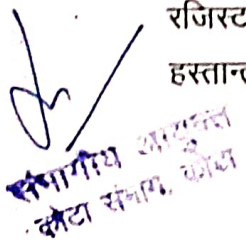 रजिस्ट
हस्तान्त
संभागीय आयुक्त
कोटा संभाग, कोटा